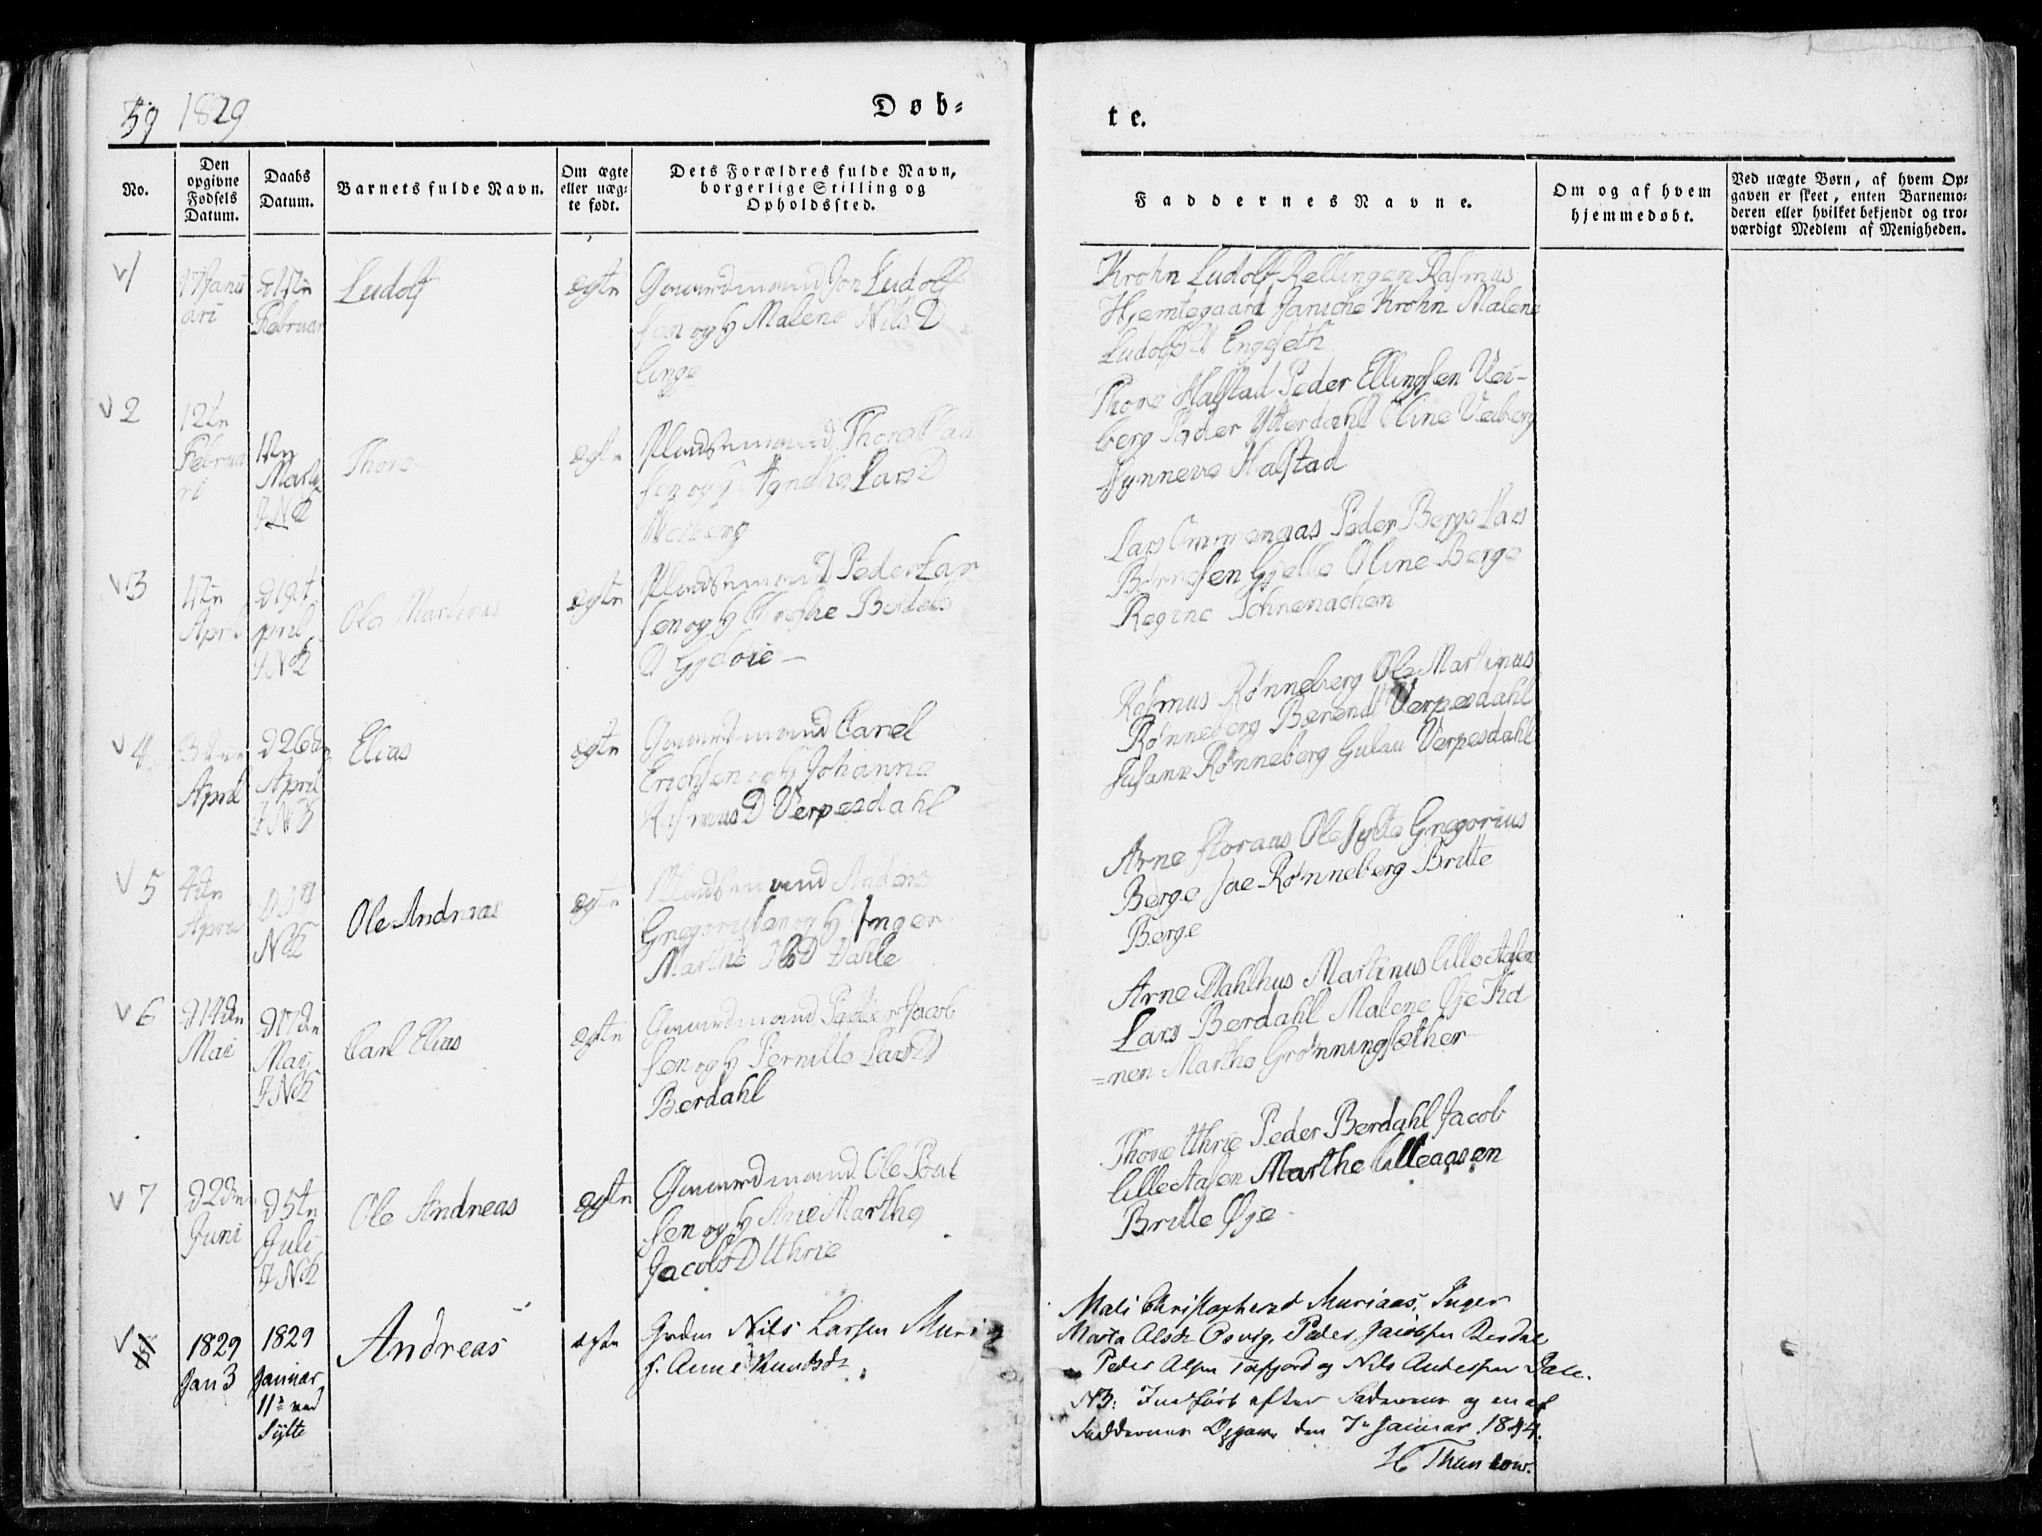 59 1829
Døb-
te.
No.
Den opgivne Fødsels Datum.
Daabs Datum.
Barnets fulde Navn.
Om ægte eller uæg-te født.
Dets Forældres fulde Navn, borgerlige Stilling og Opholdssted.
Faddernes Navne.
Om og af hvem hjemmedøbt.
Ved uægte Børn, af hvem Op-
gaven er skeet, enten Barnemo-
deren eller hvilket bekjendt og tro-
værdigt Medlem af Menigheden.
1
17 Janu
ari
Februar
Ludolf
ægte
Gaardmand Jon Ludolf
sen og H Malene Nils D
Linge
Krohn Ludolf Rellingen Rasmus
Hjemtegaard Janiche Krohn Malene
Ludolfs D Engeseth
2
12te
Februa
ri
Marti
Thore
ægte
Pladsemand Thore
sen og H Agnethe Lars D
Veiberg
Thore Halstad Peder Ellingsen Vei-
berg Peder Ytterdahl Oline Veiberg
Synneve Halstad
3
April
d 19t
pril
Ole Martinus
ægte
Pladsemand Peder Lar
sen og H Berthe Bertels
D Gjedøie
Lars Ommenaas Peder Berge Lars
Børnesen Gjelle Oline Berge
Regine
4
April
d 26de
April
Elias
ægte
Gaardmand Carel
Erichsen og H Johanne
Rasmus D Verpesdahl
Rasmus Rønneberg Ole Martinus
Rønneberg Berendt Verpesdahl
Susane Rønneberg Gulau Verpesdahl
5
4de
April
Ole Andreas
ægte
Pladsemand Anders
Gregorusen og H Inger
Marthe Ols D Dahle
Arne Storaas Ole Sylte Gregorius
Berge Rønneberg Britte
Berge
6
d 14de
Mai
d 17de
Mai
Carl Elias
ægte
Gaardmand Peder Jacob
sen og H Pernille Lars D
Berdahl
Arne Dahlhus Martinus Lilleaasen
Lars Berdahl Malene Øje
=nen Marthe Grønningsæther
7
d 2den
Juni
d 5te
Juli
Ole Andreas
ægte
Gaardmand Ole Poul
sen og H Ane Marthe
Jacobs D Uhrie
Thore Uhrie Peder Berdahl Jacob
Lilleaasen Marthe Lilleaasen
Britte Øje
1829
Jan 3
1829
Januar
11te ved
Sylte
Andreas
ægte
Nils Larsen Muri
h. Anne Knudsdr
Mali Christophersd Muriaas, Inger
Marta Olsdr Peder Jacobsen Berdal
Peder Olsen Tafjord og Nils Andersen Dale.
NB: Indført efter Faderens og en af
Faddernes Opgave den 7de Januar 1844.
H Thaulow.